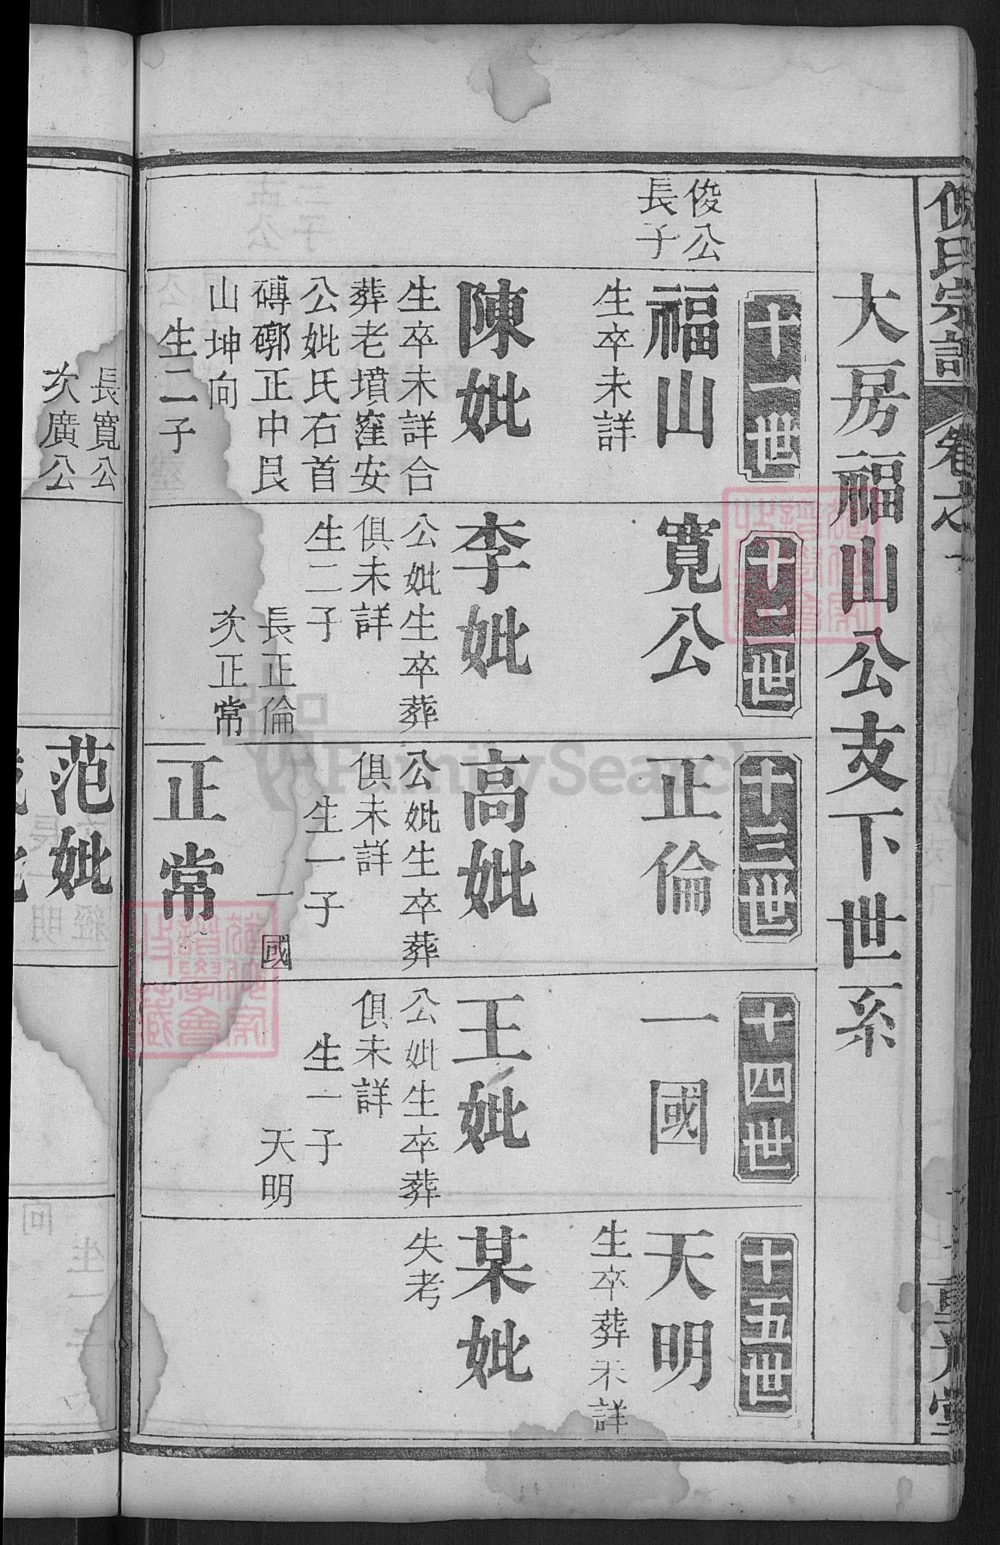 大房福山公支下世系
俊公
長子
十一世
福山
生卒未詳
陳妣
生卒未詳合
葬老墳窪安
公妣氏右首
磚槨正中艮
山坤向
生二子
長寬公
次廣公
十二世
寬公
李妣
公妣生卒葬
俱未詳
生二子
長正倫
次正常
十三世
正倫
高妣
公妣生卒葬
俱未詳
生一子
一國
正常
范妣
十四世
一國
王妣
公妣生卒葬
俱未詳
生一子
天明
十五世
天明
生卒葬未詳
某妣
失考
FamilySearch